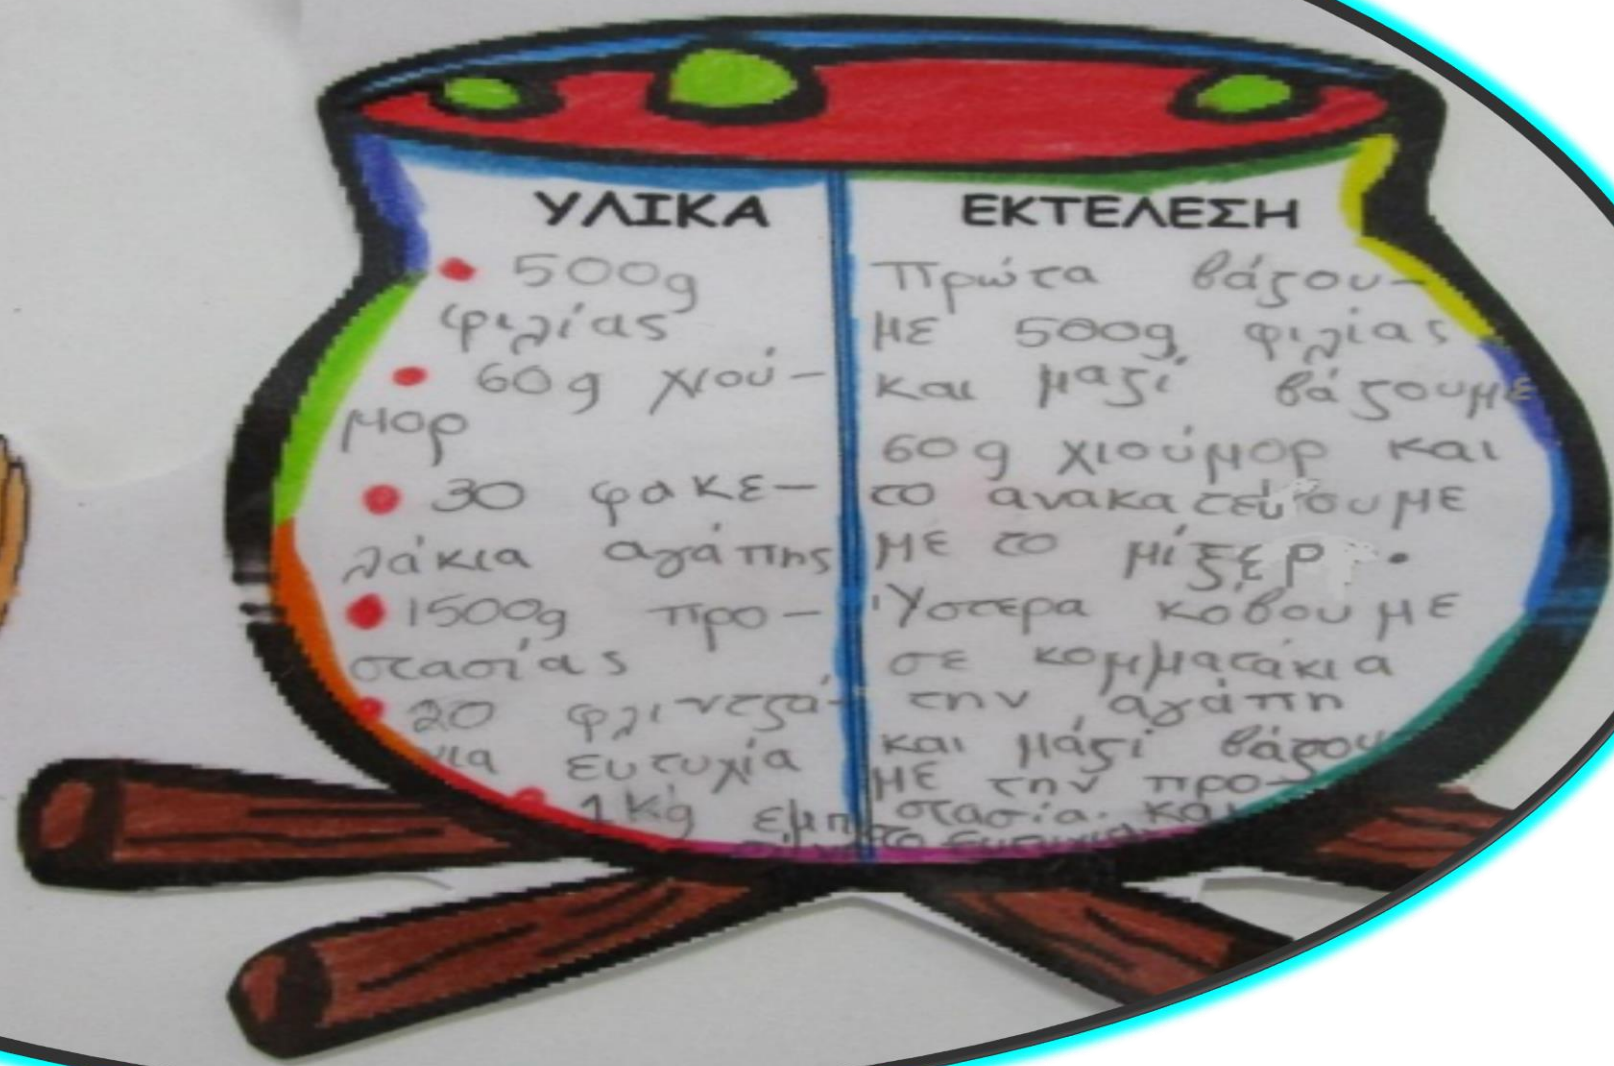 ΥΛΙΚΑ
• 500g
φιλίας
• 60g χιού-
μορ
• 30 φακε-
λάκια αγάπης
• 1500g προ-
στασίας
• 20 φλιντζά-
νια ευτυχία
• 1kg
ΕΚΤΕΛΕΣΗ
Πρώτα βάζου-
με 500g φιλίας
και μαζί βάζουμε
60g χιούμορ και
το ανακατεύουμε
με το μίξερ.
Ύστερα κόβουμε
σε κομματάκια
την αγάπη
και μάζί βάζου
με την προ-
στασία. και